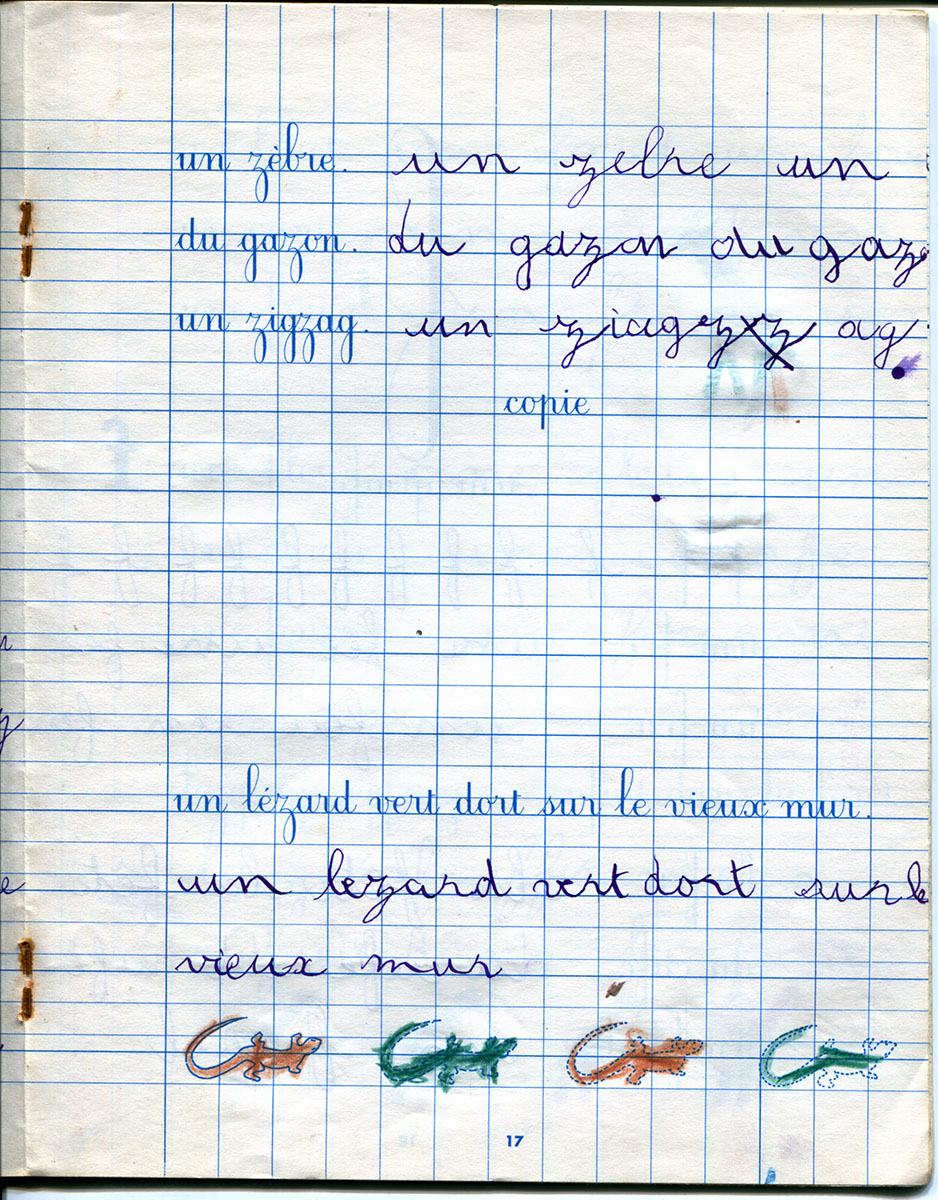 un zèbre. un zebre un
du gazon. du gazon du gazo
un zigzag. un ziagzxz ag
copie
un lézard vert dort sur le vieux mur.
un lezard vert dort sur le
vieux mur
17